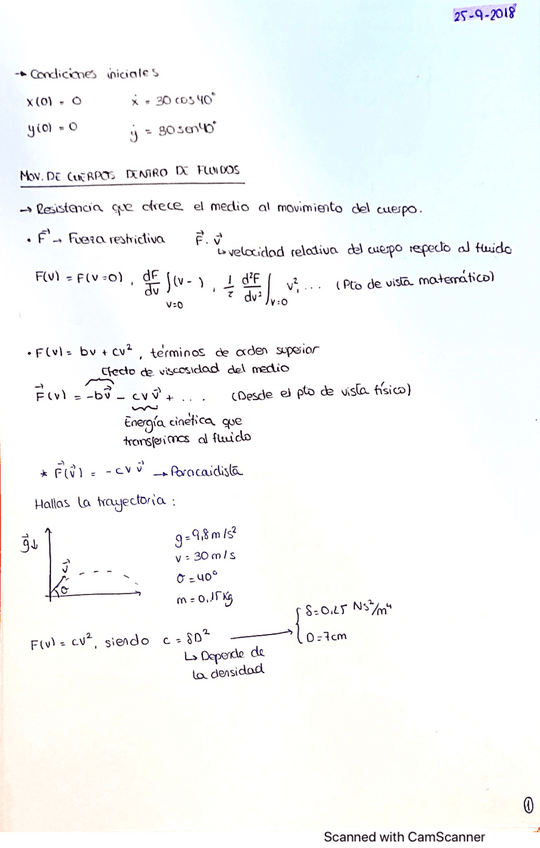 25-9-2018
→ Condiciones iniciales
x(0) = 0 ẋ = 30 cos 40°
y(0) = 0 ẏ = 30 sen 40°
MOV. DE CUERPOS DENTRO DE FLUIDOS
→ Resistencia que ofrece el medio al movimiento del cuerpo.
• F → Fuerza restrictiva F⃗ · v⃗
↳ velocidad relativa del cuerpo respecto al fluido
F(v) = F(v=0), dF/dv ∫(v- )v=0, 1/2 d²F/dv² ∫v=0 v², ... (Pto de vista matemático)
• F(v) = bv + cv², términos de orden superior
Efecto de viscosidad del medio
F⃗(v) = -bv⃗ - cvv⃗ + ... (Desde el pto de vista físico)
Energía cinética que
transferimos al fluido
* F⃗(v⃗) = -cvv⃗ → Paracaidista
Hallas la trayectoria:
g⃗↓ v⃗ θ
g = 9,8 m/s²
v = 30 m/s
θ = 40°
m = 0,15 kg
F(v) = cv², siendo c = δD² → { δ = 0,25 Ns²/m⁴
D = 7cm
↳ Depende de
la densidad
1
Scanned with CamScanner